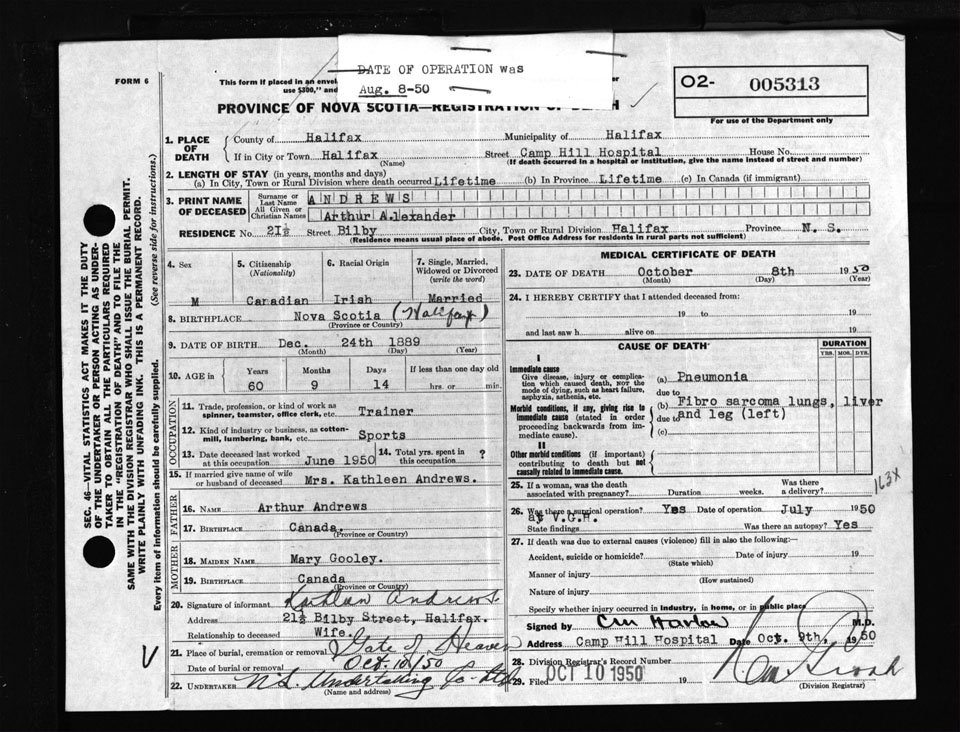 DATE OF OPERATION was
Aug. 8-50
FORM 6
This form if placed in an envel
use $300," and
PROVINCE OF NOVA SCOTIA—REGISTRATION OF DEATH
O2- 005313
For use of the Department only
SEC. 46—VITAL STATISTICS ACT MAKES IT THE DUTY
OF THE UNDERTAKER OR PERSON ACTING AS UNDER-
TAKER TO OBTAIN ALL THE PARTICULARS REQUIRED
IN THE "REGISTRATION OF DEATH" AND TO FILE THE
SAME WITH THE DIVISION REGISTRAR WHO SHALL ISSUE THE BURIAL PERMIT.
WRITE PLAINLY WITH UNFADING INK. THIS IS A PERMANENT RECORD.
Every item of information should be carefully supplied. (See reverse side for instructions.)
1. PLACE OF DEATH
County of Halifax Municipality of Halifax
If in City or Town Halifax Street Camp Hill Hospital House No.
(Name) (If death occurred in a hospital or institution, give the name instead of street and number)
2. LENGTH OF STAY (in years, months and days)
(a) In City, Town or Rural Division where death occurred Lifetime (b) In Province Lifetime (c) In Canada (if immigrant)
3. PRINT NAME OF DECEASED
Surname or Last Name ANDREWS
All Given or Christian Names Arthur Alexander
RESIDENCE No. 21½ Street Bilby City, Town or Rural Division Halifax Province N. S.
(Residence means usual place of abode. Post Office Address for residents in rural parts not sufficient)
4. Sex 5. Citizenship (Nationality) 6. Racial Origin 7. Single, Married, Widowed or Divorced (write the word)
M Canadian Irish Married
8. BIRTHPLACE Nova Scotia (Halifax)
(Province or Country)
9. DATE OF BIRTH Dec. 24th 1889
(Month) (Day) (Year)
10. AGE in Years Months Days If less than one day old
60 9 14 hrs. or min.
OCCUPATION
11. Trade, profession, or kind of work as spinner, teamster, office clerk, etc. Trainer
12. Kind of industry or business, as cotton-mill, lumbering, bank, etc. Sports
13. Date deceased last worked at this occupation June 1950 14. Total yrs. spent in this occupation ?
15. If married give name of wife or husband of deceased Mrs. Kathleen Andrews.
FATHER
16. NAME Arthur Andrews
17. BIRTHPLACE Canada.
(Province or Country)
MOTHER
18. MAIDEN NAME Mary Gooley.
19. BIRTHPLACE Canada
(Province or Country)
20. Signature of informant Kathleen Andrews
Address 21½ Bilby Street, Halifax.
Relationship to deceased Wife.
21. Place of burial, cremation or removal Gate of Heaven
Date of burial or removal Oct. 10/50
22. UNDERTAKER N S. Undertaking Co Ltd
(Name and address)
V
MEDICAL CERTIFICATE OF DEATH
23. DATE OF DEATH October 8th 1950
(Month) (Day) (Year)
24. I HEREBY CERTIFY that I attended deceased from:
19 to 19
and last saw h alive on 19
CAUSE OF DEATH DURATION
YRS. MOS. DYS.
I
Immediate cause
Give disease, injury or complication which caused death, not the mode of dying, such as heart failure, asphyxia, asthenia, etc.
(a) Pneumonia
due to
Morbid conditions, if any, giving rise to immediate cause (stated in order proceeding backwards from immediate cause).
(b) Fibro sarcoma lungs, liver
due to and leg (left)
(c)
II
Other morbid conditions (if important) contributing to death but not causally related to immediate cause.
25. If a woman, was the death associated with pregnancy? Duration weeks. Was there a delivery?
163X
26. Was there a surgical operation? Yes Date of operation July 1950
at V.G.H.
State findings Was there an autopsy? Yes
27. If death was due to external causes (violence) fill in also the following:—
Accident, suicide or homicide? Date of injury 19
(State which)
Manner of injury
(How sustained)
Nature of injury
Specify whether injury occurred in industry, in home, or in public place
Signed by M.D.
Address Camp Hill Hospital Date Oct. 9th, 1950
28. Division Registrar's Record Number
29. Filed OCT 10 1950 19
(Division Registrar)